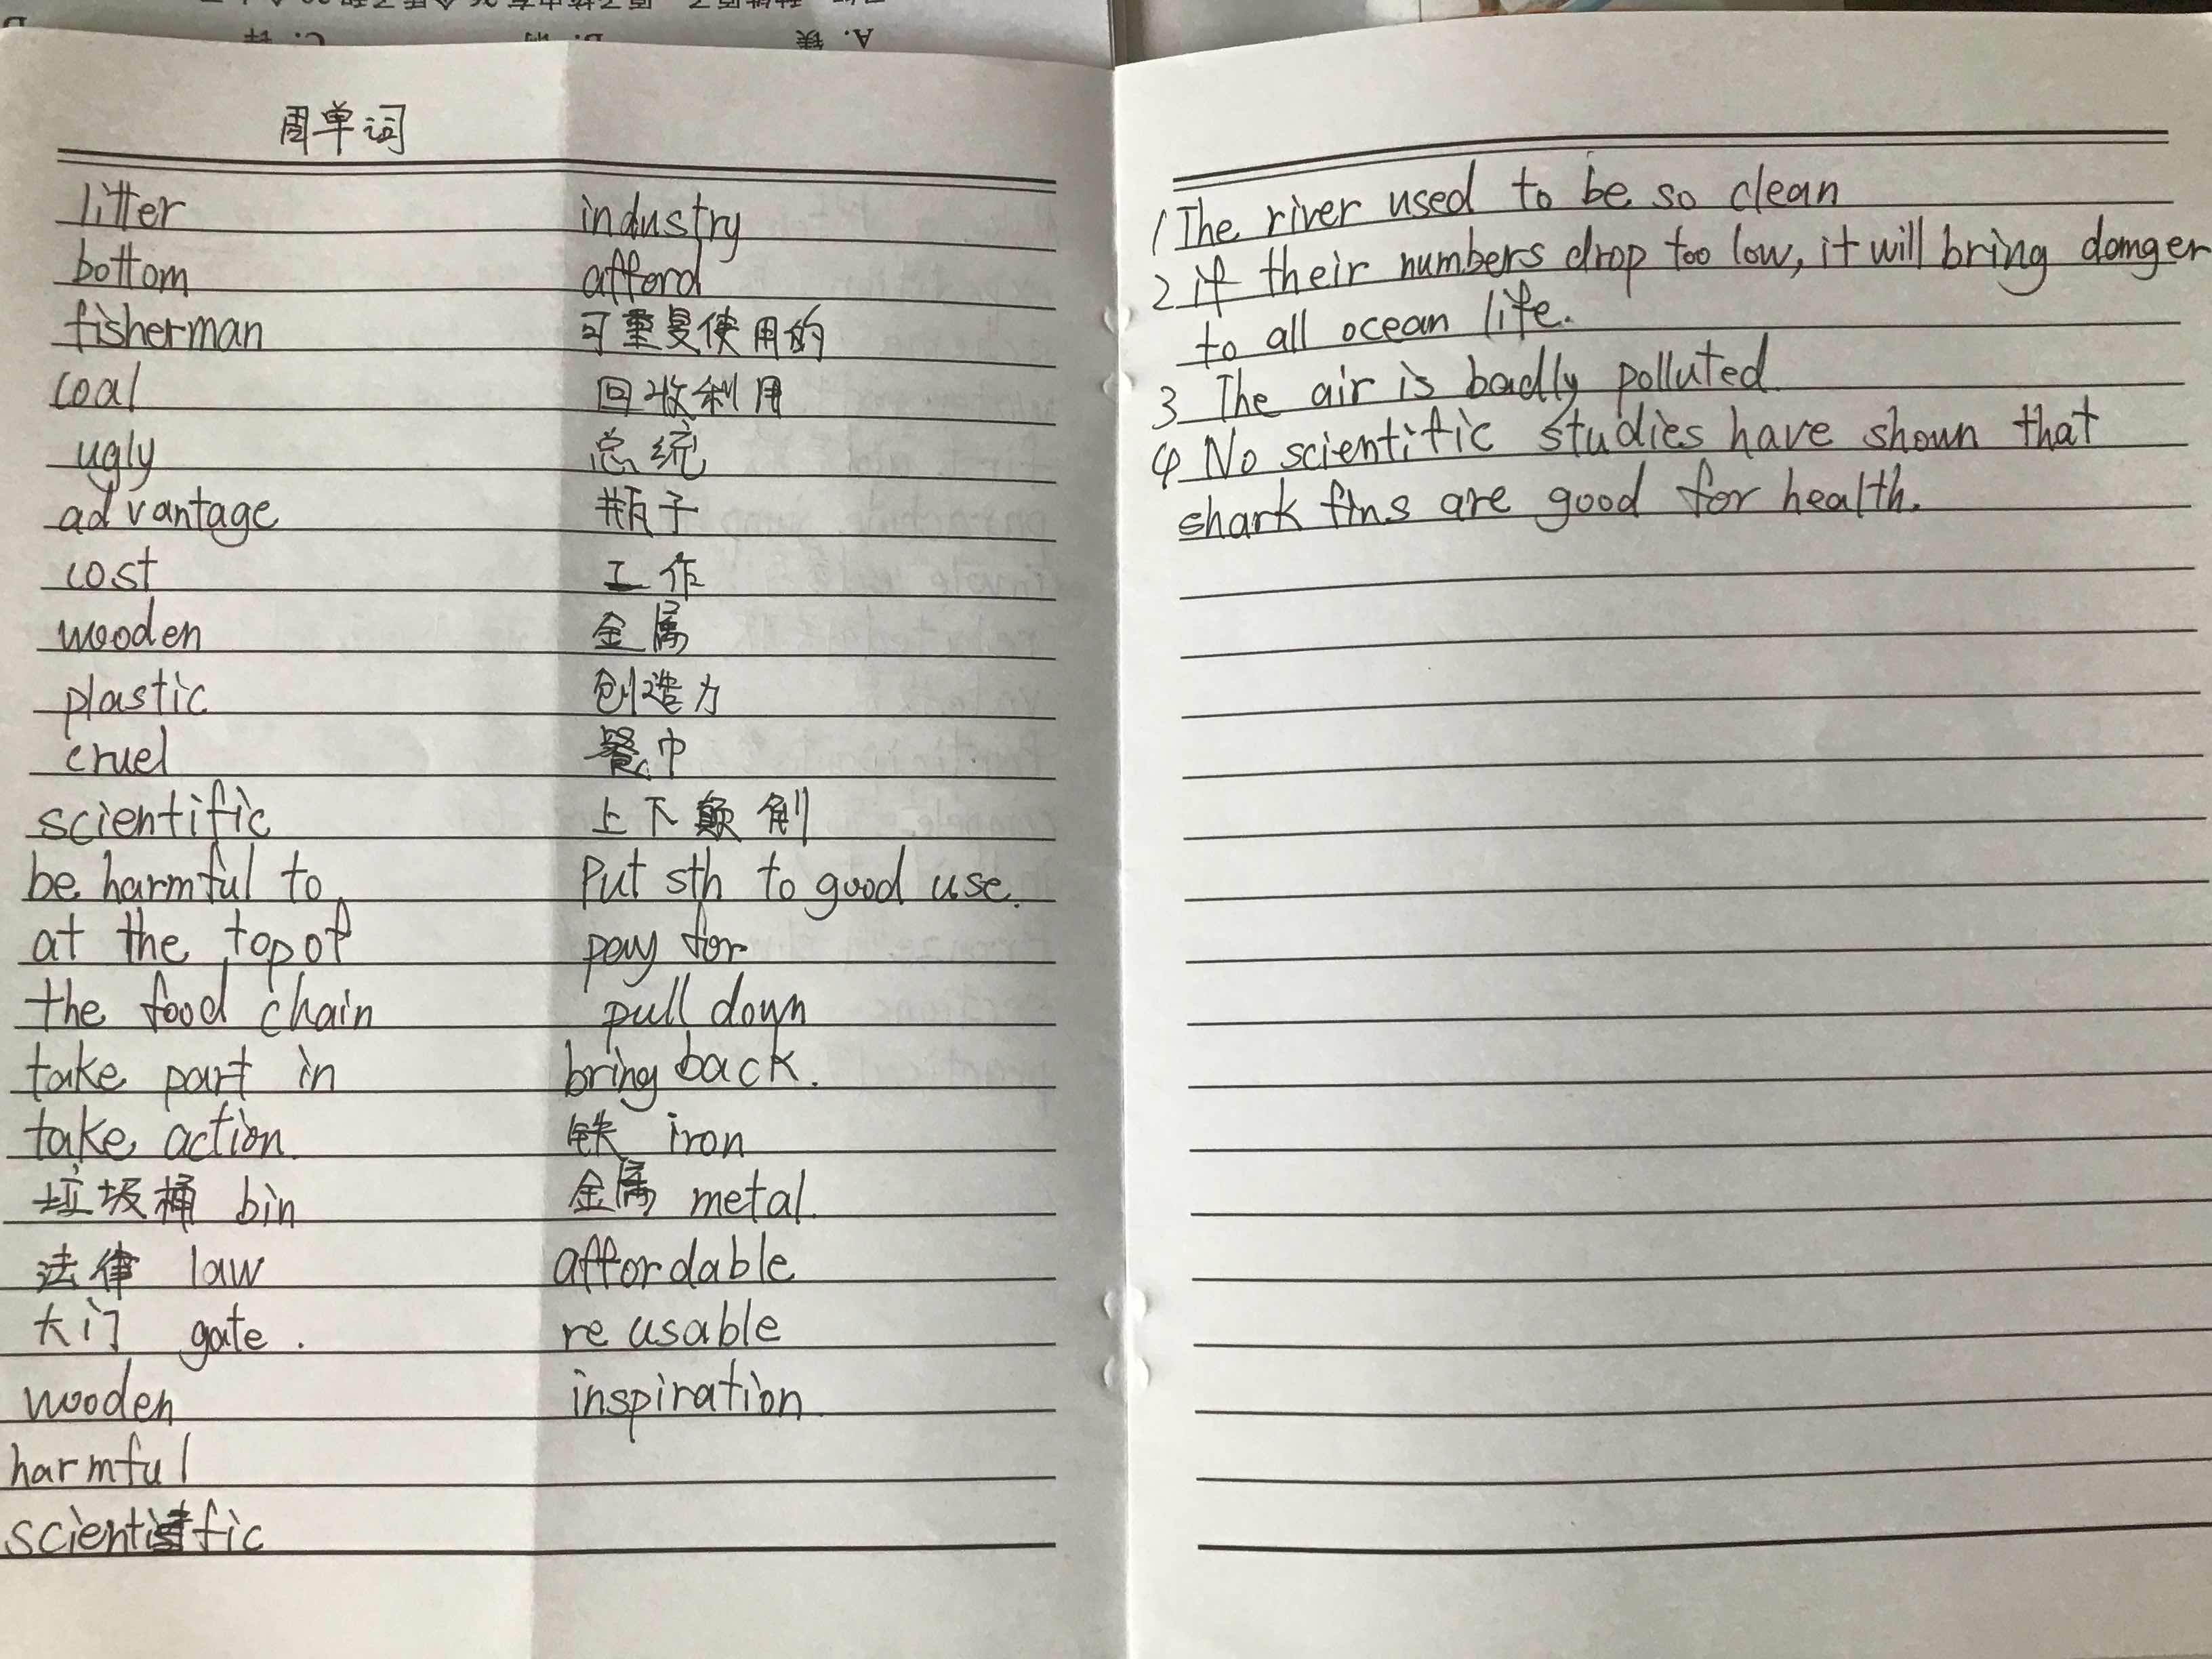 周单词
litter
bottom
fisherman
coal
ugly
advantage
cost
wooden
plastic
cruel
scientific
be harmful to
at the top of
the food chain
take part in
take action.
垃圾桶 bin
法律 law
大门 gate.
wooden
harmful
scientific
industry
afford
可重复使用的
回收利用
总统
瓶子
工作
金属
创造力
餐巾
上下颠倒
Put sth to good use.
pay for
pull down
bring back.
铁 iron
金属 metal.
affordable
reusable
inspiration.
1 The river used to be so clean
2 if their numbers drop too low, it will bring danger
to all ocean life.
3 The air is badly polluted.
4 No scientific studies have shown that
shark fins are good for health.